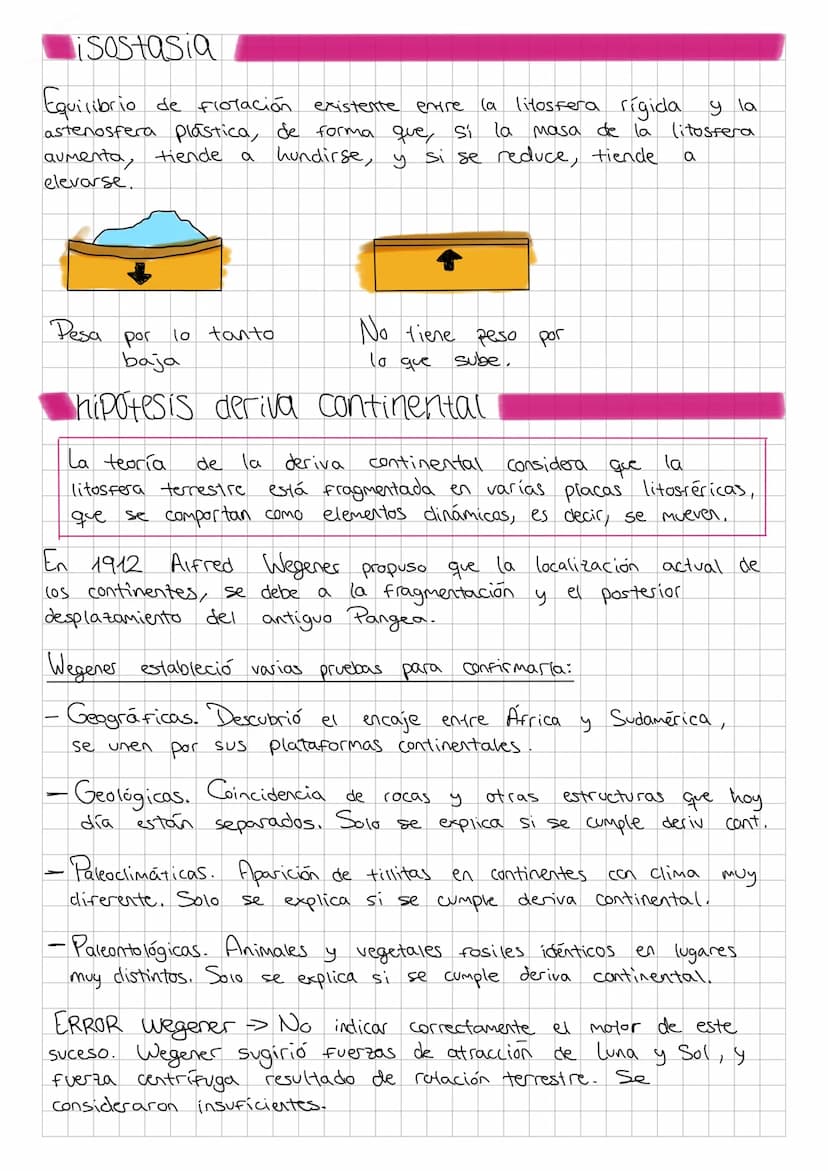 isostasia
Equilibrio de flotación existente entre la litosfera rígida y la
astenosfera plástica, de forma que, si la masa de la litosfera
aumenta, tiende a hundirse, y si se reduce, tiende a
elevarse.
Pesa por lo tanto
baja
No tiene peso por
lo que sube.
hipótesis deriva continental
La teoría de la deriva continental considera que la
litosfera terrestre está fragmentada en varias placas litosféricas,
que se comportan como elementos dinámicos, es decir, se mueven.
En 1912 Alfred Wegener propuso que la localización actual de
los continentes, se debe a la fragmentación y el posterior
desplazamiento del antiguo Pangea.
Wegener estableció varias pruebas para confirmarla:
- Geográficas. Descubrió el encaje entre África y Sudamérica,
se unen por sus plataformas continentales.
- Geológicas. Coincidencia de rocas y otras estructuras que hoy
día están separados. Solo se explica si se cumple deriv cont.
- Paleoclimáticas. Aparición de tillitas en continentes con clima muy
diferente. Solo se explica si se cumple deriva continental.
- Paleontológicas. Animales y vegetales fosiles idénticos en lugares
muy distintos. Solo se explica si se cumple deriva continental.
ERROR Wegener -> No indicar correctamente el motor de este
suceso. Wegener sugirió fuerzas de atracción de Luna y Sol, y
fuerza centrífuga resultado de rotación terrestre. Se
consideraron insuficientes.